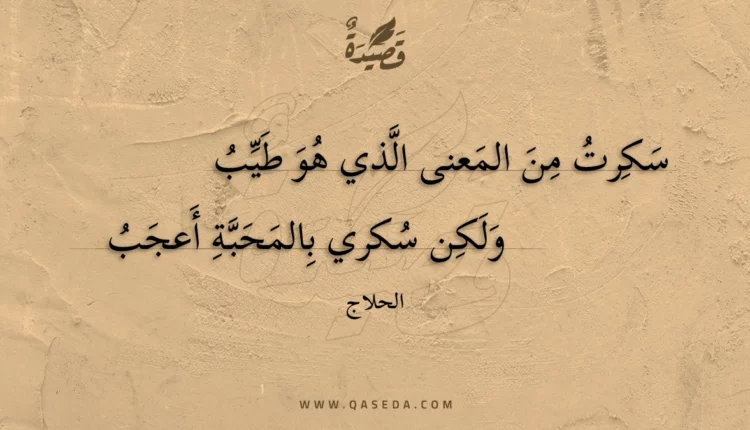 قَصِيدَةٌ
سَكِرتُ مِنَ المَعنى الَّذي هُوَ طَيِّبُ
وَلَكِن سُكري بِالمَحَبَّةِ أَعجَبُ
الحلاج
WWW.QASEDA.COM